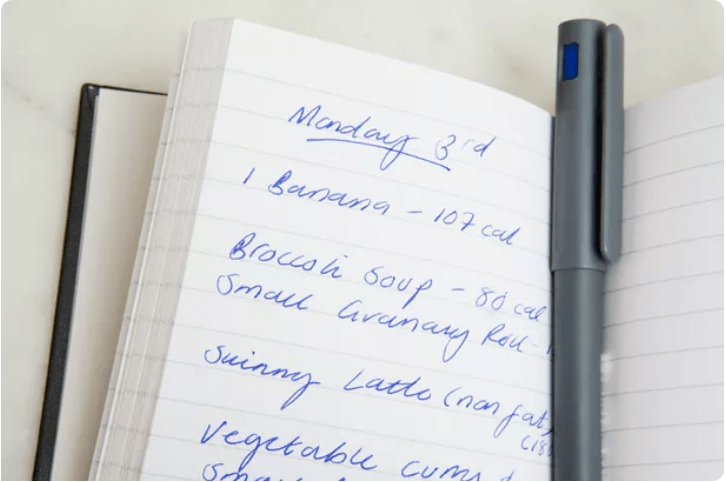 Monday 3rd
1 Banana - 107 cal
Broccoli Soup - 80 cal
Small Granary Roll - 1
Skinny Latte (non fat)
(18
Vegetable
Small